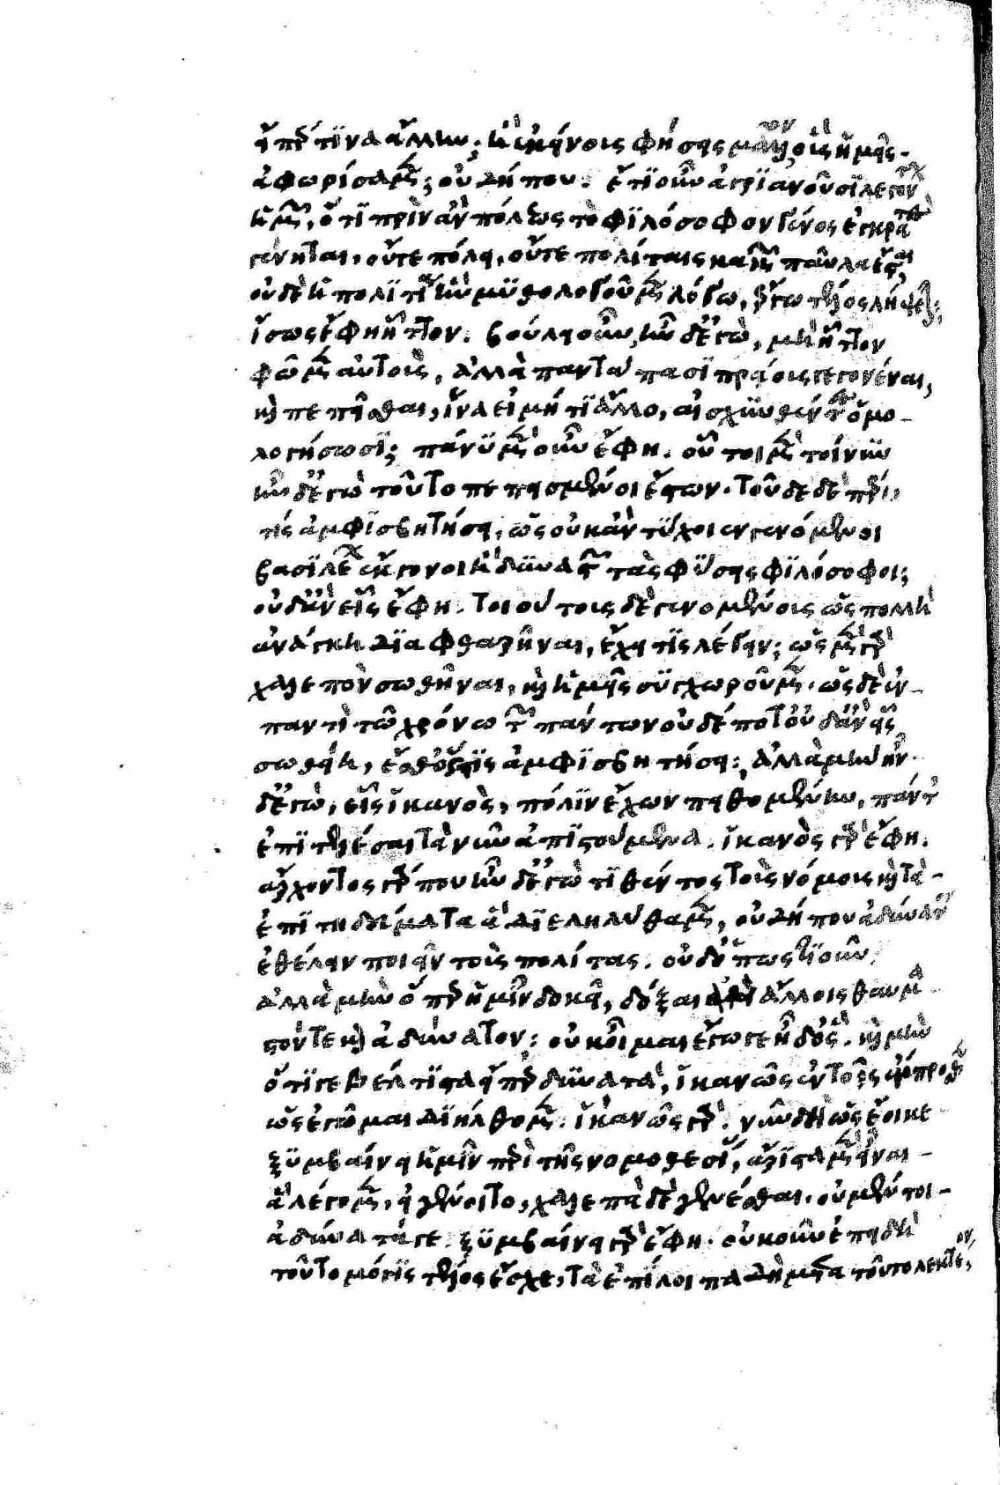 ἢ περί τινα ἄλλην; ἢ ἐκείνοις φήσεις μᾶλλον, οἷς ἡμεῖς
ἀφωρίσαμεν; οὐ δήπου. ἔτι οὖν ἀγριανοῦσι λεγόντων
ἡμῶν, ὅτι πρὶν ἂν πόλεως τὸ φιλόσοφον γένος ἐγκρατὲς
γένηται, οὔτε πόλει, οὔτε πολίταις κακῶν παῦλα ἔσται,
οὐδὲ ἡ πολιτεία ἣν μυθολογοῦμεν λόγω, ἔργω τέλος λήψεται;
ἴσως ἔφη ἧττον. βούλει οὖν, ἦν δ' ἐγὼ, μὴ ἧττον
φῶμεν αὐτοὺς, ἀλλὰ παντάπασι πράους γεγονέναι,
καὶ πεπεῖσθαι, ἵνα εἰ μή τι ἄλλο, αἰσχυνθέντες ὁμο-
λογήσωσι; πάνυ μὲν οὖν ἔφη. οὗτοι μὲν τοίνυν
ἦν δ' ἐγὼ τοῦτο πεπεισμένοι ἔστων. τοῦδε δὲ πέρι,
τίς ἀμφισβητήσει, ὡς οὐκ ἂν τύχοιεν γενόμενοι
βασιλέων ἔκγονοι ἢ δυναστῶν τὰς φύσεις φιλόσοφοι;
οὐδ' ἂν εἷς ἔφη. τοιούτους δὲ γενομένους ὡς πολλὴ
ἀνάγκη διαφθαρῆναι, ἔχει τις λέγειν; ὡς μὲν γὰρ
χαλεπὸν σωθῆναι, καὶ ἡμεῖς συγχωροῦμεν. ὡς δὲ ἐν
παντὶ τῶ χρόνω τῶν πάντων οὐδέποτ' οὐδ' ἂν εἷς
σωθείη, ἔσθ' ὅστις ἀμφισβητήσει; ἀλλὰ μὴν ἦν
δ' ἐγὼ, εἷς ἱκανὸς, πόλιν ἔχων πειθομένην, πάντ'
ἐπιτελέσαι τὰ νῦν ἀπιστούμενα. ἱκανὸς γὰρ ἔφη.
ἄρχοντος γάρ που ἦν δ' ἐγὼ τιθέντος τοὺς νόμους καὶ τὰ
ἐπιτηδεύματα ἃ διεληλύθαμεν, οὐ δήπου ἀδύνατον
ἐθέλειν ποιεῖν τοὺς πολίτας. οὐδ' ὁπωστιοῦν.
ἀλλὰ μὴν ἅπερ ἡμῖν δοκεῖ, δόξαι καὶ ἄλλοις θαυμα-
στόν τε καὶ ἀδύνατον; οὐκ οἶμαι ἔγωγε ἦ δ' ὅς. καὶ μὴν
ὅτι γε βέλτιστα εἴπερ δυνατά, ἱκανῶς ἐν τοῖς ἔμπροσθεν
ὡς ἐγῶμαι διήλθομεν. ἱκανῶς γάρ. νῦν δὴ ὡς ἔοικε
ξυμβαίνει ἡμῖν περὶ τῆς νομοθεσίας, ἄριστα μὲν εἶναι
ἃ λέγομεν, εἰ γένοιτο, χαλεπὰ δὲ γενέσθαι. οὐ μέντοι
ἀδύνατά γε. ξυμβαίνει γὰρ ἔφη. οὐκοῦν ἐπειδὴ
τοῦτο μόγις τέλος ἔσχε, τὰ ἐπίλοιπα δὴ μετὰ τοῦτο λεκτέον,